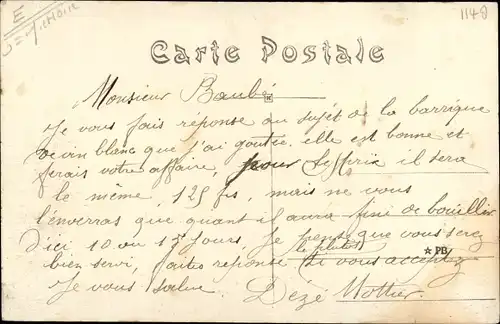 E
1140
Carte Postale
Monsieur Baubé
Je vous fais réponse au sujet de la barrique
de vin blanc que j'ai goutée, elle est bonne et
ferais votre affaire, pour le prix il sera
le même, 125 frs, mais ne vous
l'énverras que quant il aura fini de bouillir
d'ici 10 ou 15 jours, Je pense que vous serez
bien servi, faites reponse si vous acceptez
★PB
Je vous salue. Dézé